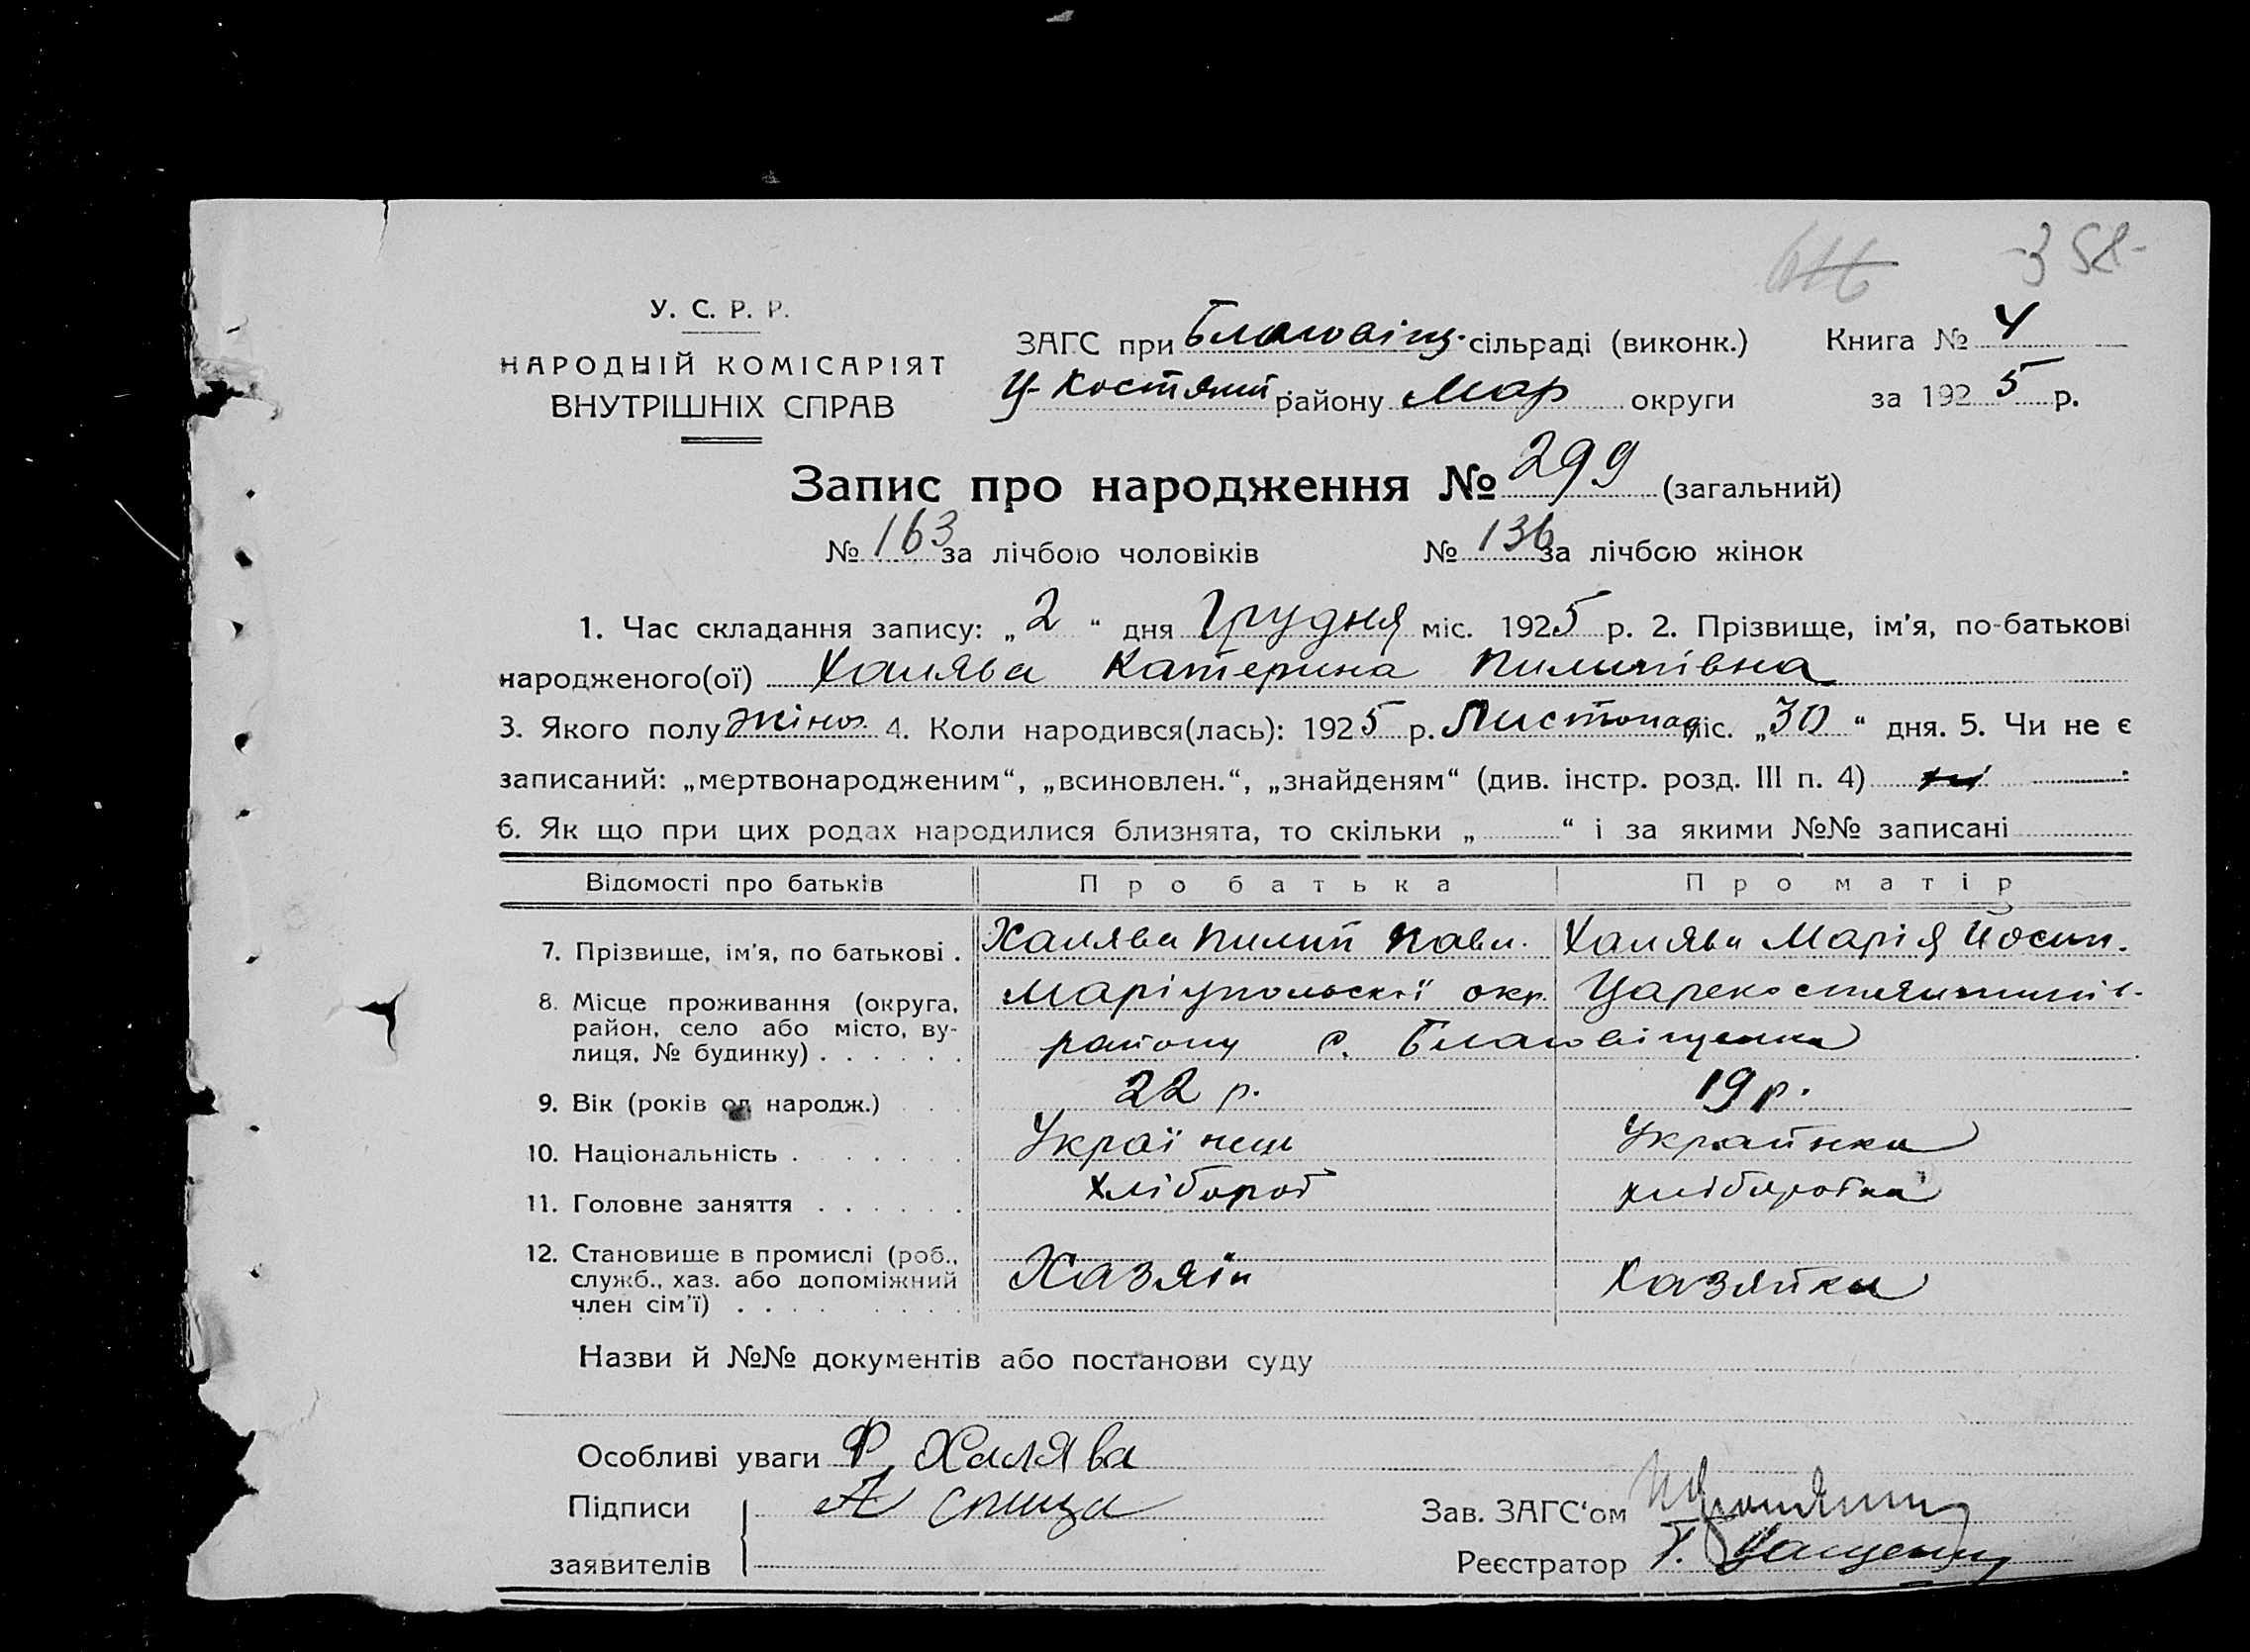 616 -358-
У. С. Р. Р.
НАРОДНІЙ КОМІСАРІЯТ
ВНУТРІШНІХ СПРАВ
ЗАГС при Благовіщ. сільраді (виконк.) Книга № 4
Ц-Костянт. району Мар округи за 1925 р.
Запис про народження № 299 (загальний)
№ 163 за лічбою чоловіків № 136 за лічбою жінок
1. Час складання запису: „2“ дня Грудня міс. 1925 р. 2. Прізвище, ім'я, по-батькові
народженого(ої) Халява Катерина Пилипівна
3. Якого полу жіноч. 4. Коли народився(лась): 1925 р. Листопад міс. „30“ дня. 5. Чи не є
записаний: „мертвонародженим“, „всиновлен.“, „знайденям“ (див. інстр. розд. III п. 4) ні
6. Як що при цих родах народилися близнята, то скільки „ “ і за якими №№ записані
Відомості про батьків Про батька Про матір
7. Прізвище, ім'я, по батькові . Халява Пилип Павл. Халява Марія Йосип.
8. Місце проживання (округа, Маріупольскої окр.
район, село або місто, ву-
лиця, № будинку) . . . . . . району с. Благовіщенка
9. Вік (років од народж.) . . 22 р. 19 р.
10. Національність . . . . . . . Українець Українка
11. Головне заняття . . . . . . Хлібороб хліборобка
12. Становище в промислі (роб.,
служб., хаз. або допоміжний Хазяїн Хазяйка
член сім'ї) . . . . . . . . .
Назви й №№ документів або постанови суду
Особливі уваги Ф. Халява
Підписи А Спица Зав. ЗАГС'ом
заявителів Реєстратор Т.